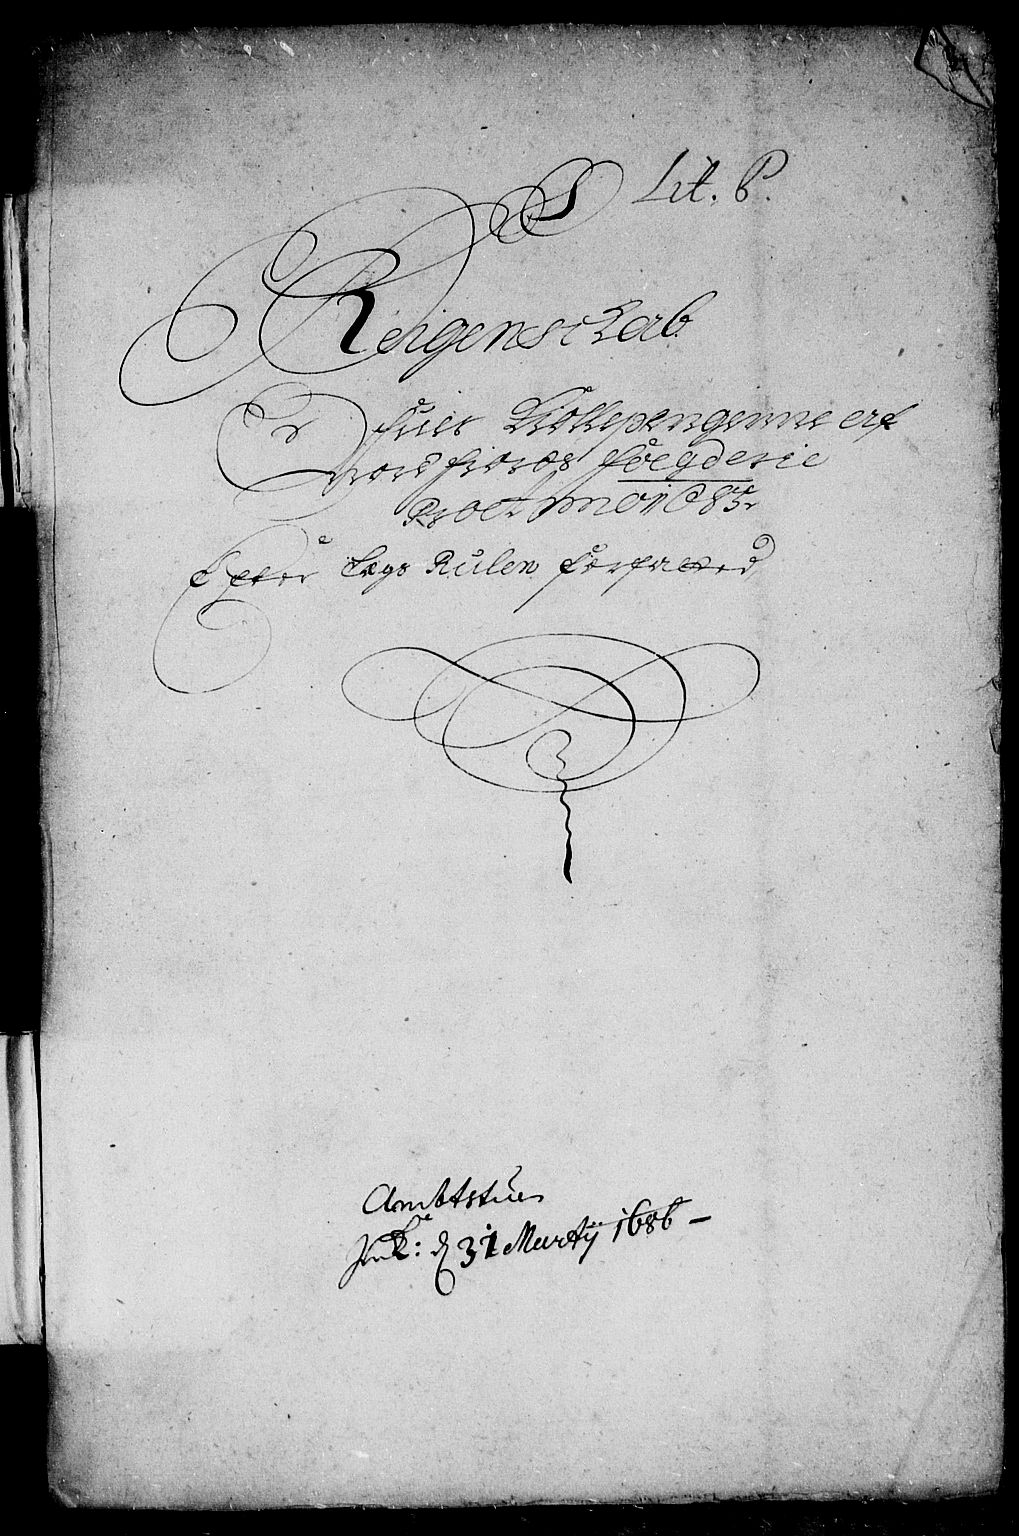 Lit. P.
Reigenschab
Offuer Kiollepengerne af
Nordfiords foegderie
Pro Anno 1685
Efter Legs Rulen forfatted
Ambtstuen
Ink: d 31 Martij 1686